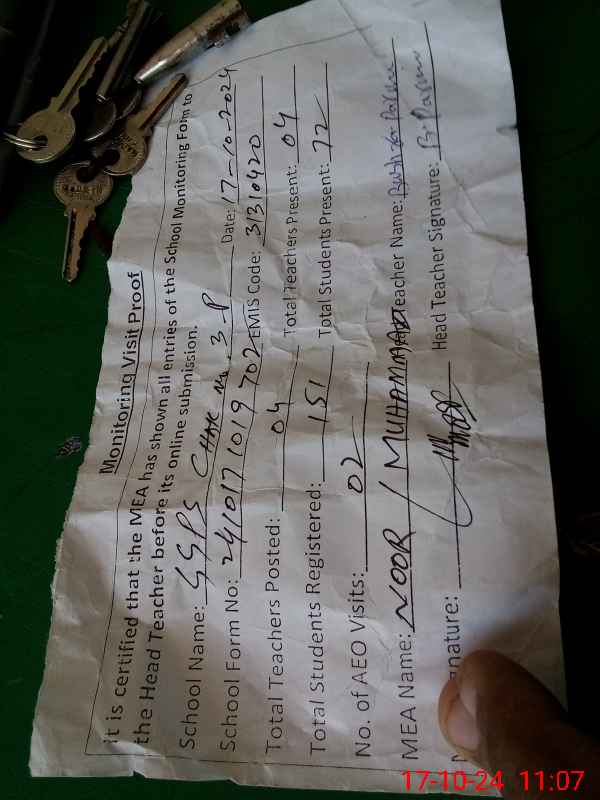 Monitoring Visit Proof
it is certified that the MEA has shown all entries of the School Monitoring Form to
the Head Teacher before its online submission.
School Name: GGPS CHAK No. 3 P Date: 17-10-2024
School Form No: 241017 1019 702 EMIS Code: 31310420
Total Teachers Posted: 04 Total Teachers Present: 04
Total Students Registered: 151 Total Students Present: 72
No. of AEO Visits: 02
MEA Name: NOOR MUHAMMAD Teacher Name: Parveen
gnature: Head Teacher Signature:
17-10-24 11:07